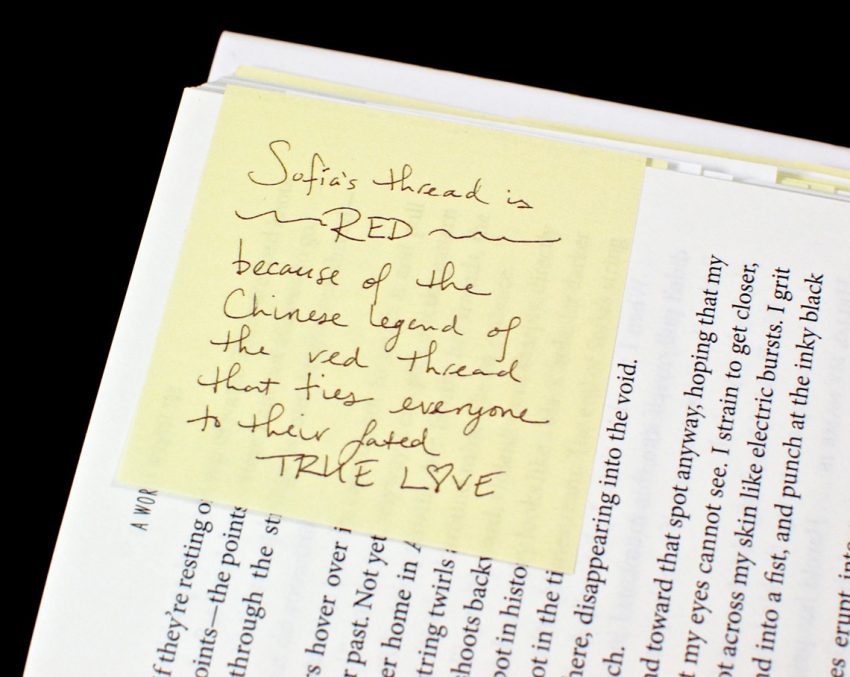 Sofia's thread is
RED
because of the
Chinese legend of
the red thread
that ties everyone
to their fated
TRUE L♡VE
A WOR
if they're resting
oints—the points
through the
hover over
r past. Not yet
er home in
tring twirls
hoots
pot in
ot in the
here, disappearing into the void.
ch.
nd toward that spot anyway, hoping that my
t my eyes cannot see. I strain to get closer,
ot across my skin like electric bursts. I grit
nd into a fist, and punch at the inky black
es erupt into